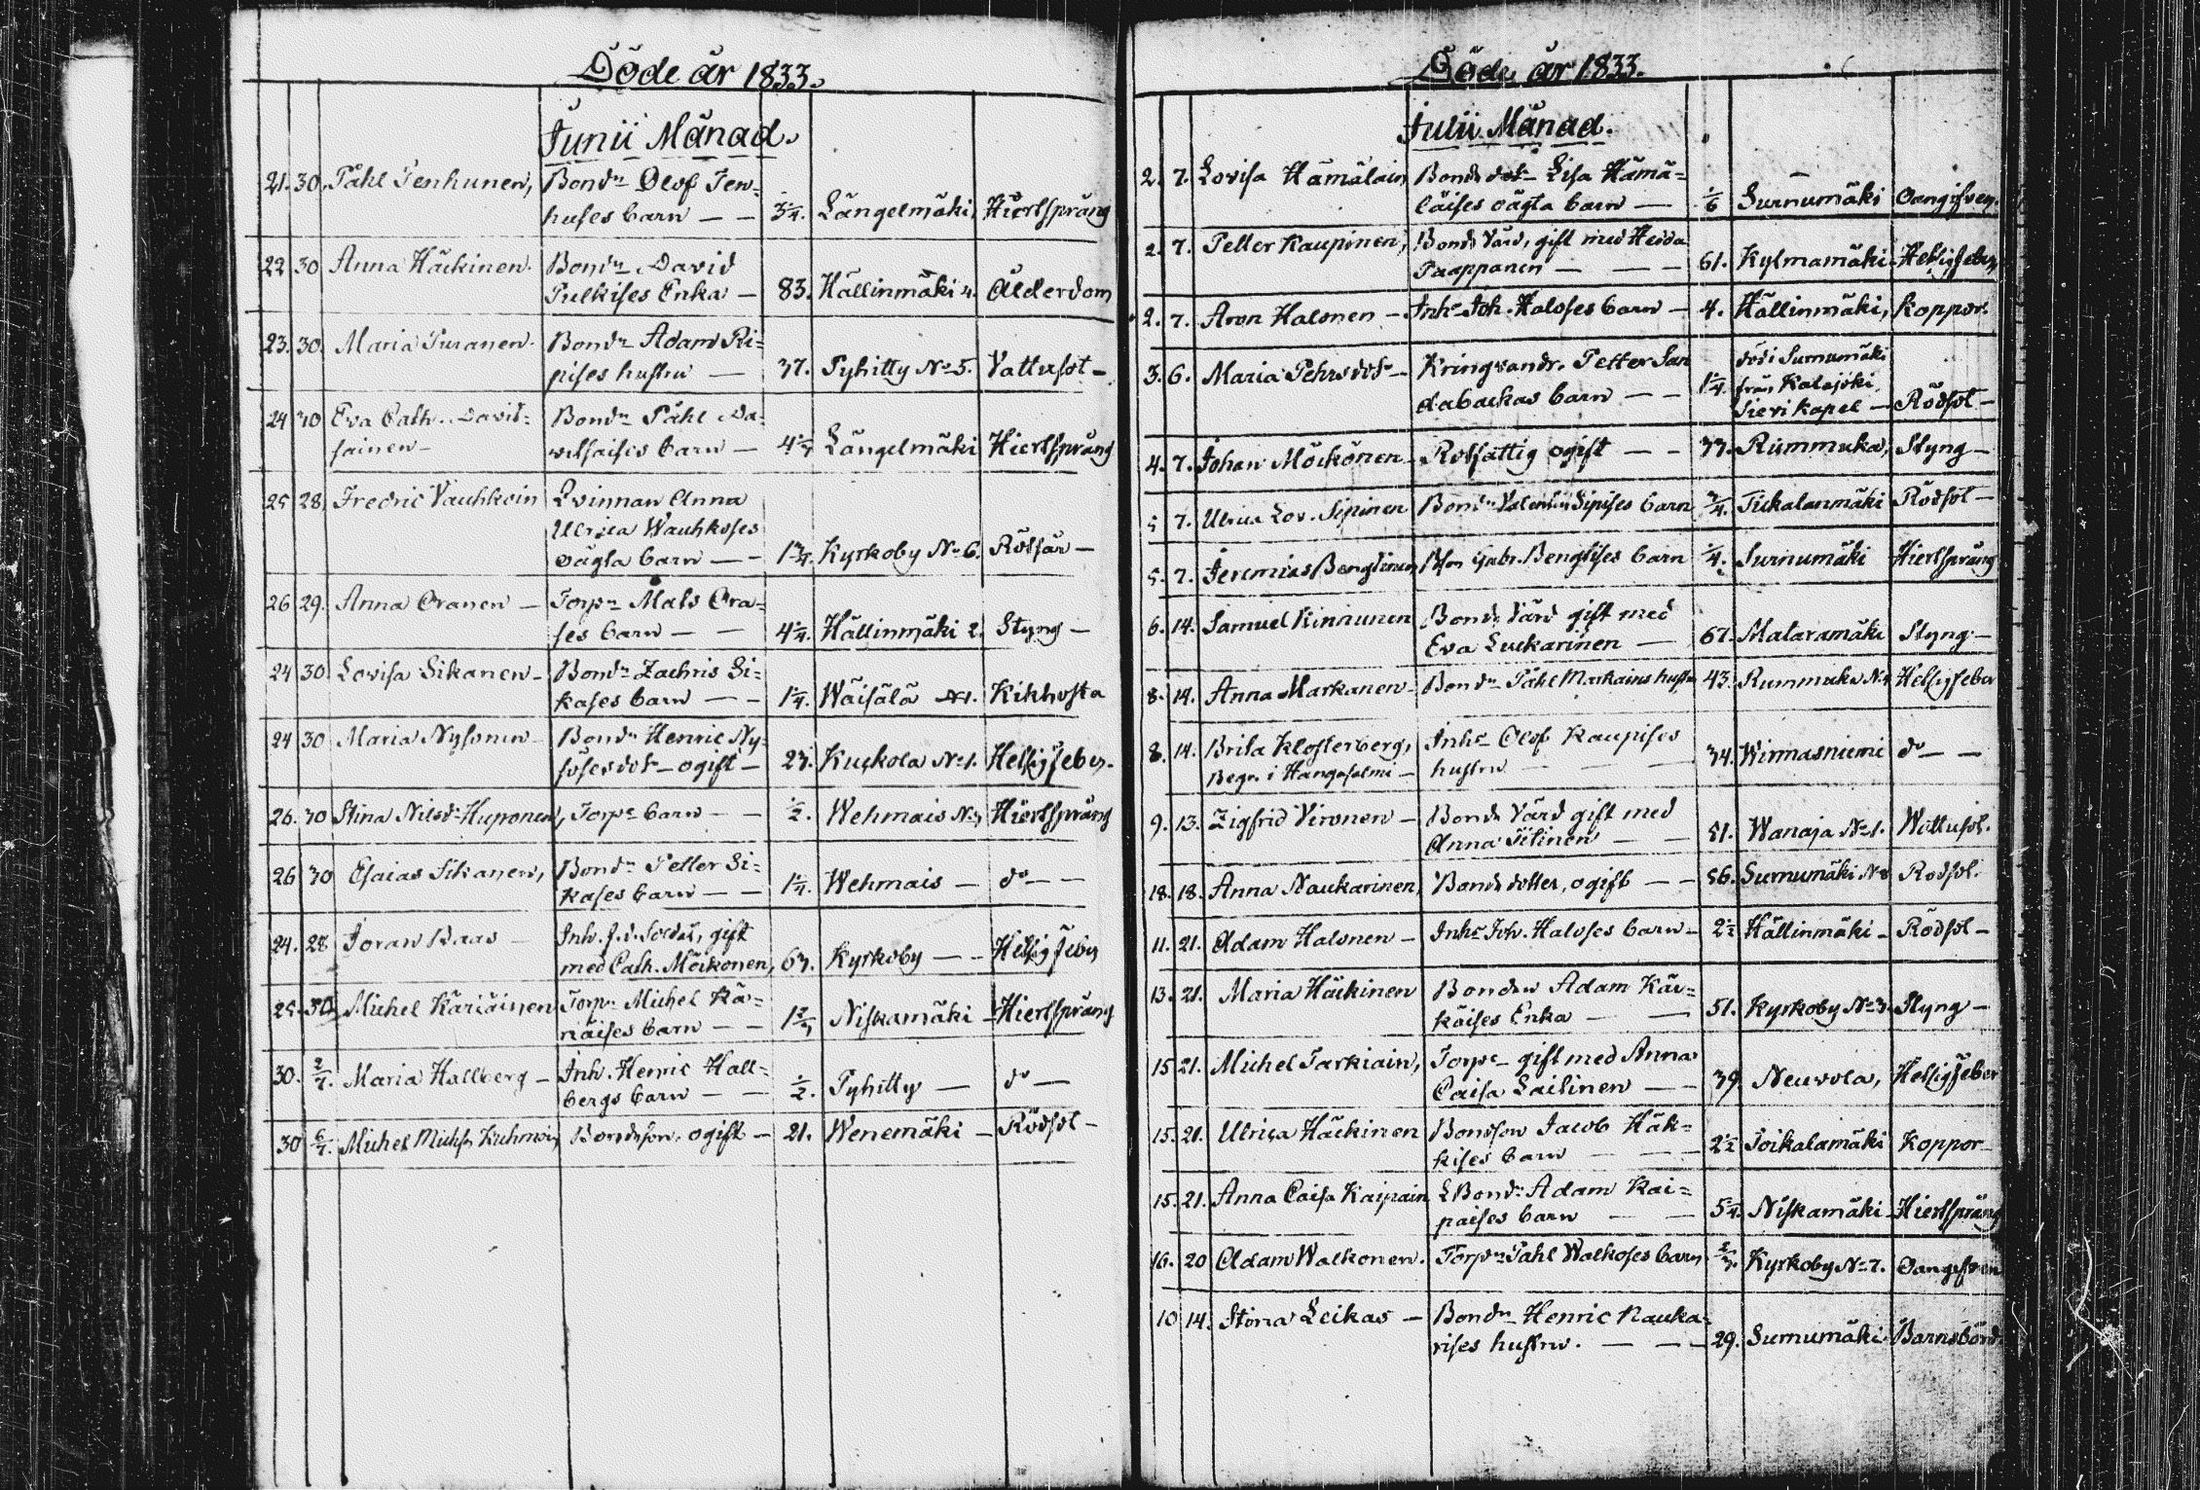 Döde år 1833.
Junii Månad.
21. 30. Påhl Tenhunen, Bondn Olof Ten=
huses barn — — 3 1/4. Längelmäki, Hiertsprång
22 30 Anna Häckinen. Bondn David
Pulkises Enka — 83. Hällinmäki 4. Ålderdom
23. 30. Maria Puranen. Bondn Adam Ri=
pises hustru — 37. Pyhitty No 5. Vattusot —
24 30 Eva Cath. David= Bondn Påhl Da=
sainen — vidsaises barn — Längelmäki Hiertsprång
25 28 Fredric Vauhkoin Qvinnan Anna
Ulrica Wauhkoses
oägta barn — — 1 3/4. Kyrkoby No 6. Rödsån —
26 29. Anna Oranen — Torpn Mats Ora=
ses barn — — 4 1/4. Hällinmäki 2. Styng —
24 30 Lovisa Sikanen — Bondn Zachris Si=
kases barn — — 1 1/4. Wäisälä No 1. Kikhosta
24 30 Maria Nysönen — Bondn Henric Ny=
söses dotr — ogift — 27. Kuckola No 1. Hetsigfeber.
26. 30 Stina Nilsdr Huponen, Torpr barn — — 1/2. Wehmais Hiertsprång
26 30 Esaias Sikanen, Bondn Petter Si=
kases barn — — 1 1/4. Wehmais — do — —
24. 28 Joran Baas — Inh. f.d. Soldat, gift
med Cath. Möikonen, 67. Kyrkoby — — Hetsig feber
25. 30. Michel Käriäinen Torpr Michel Kä=
riäises barn — — Niskamäki — Hiertsprång
30. 2/7. Maria Hallberg — Inh. Henric Hall=
bergs barn — — 1/2. Pyhitty — do —
30 6/7. Michel Michs. Kuhmoin, Bondeson, ogift — 21. Wenemäki — Rödsot —
Döde år 1833.
Julii Månad.
2. 7. Lovisa Hämäläin, Bonde dotr Lisa Hämä=
läises oägta barn — 1/6 Surnumäki Oangifven.
2. 7. Petter Kaupinen, Bonde Värd, gift med Hedda
Paappanen — — — 61. Kylmamäki Hetsigfeber
2. 7. Aron Halonen — Inhr Joh. Haloses barn — 4. Hällinmäki, Koppor.
3. 6. Maria Pehrsdotr — Kringvandr. Petter San
dabackas barn — — 1 1/4. död i Surnumäki
från Kalajoki
Sievi Kapel — Rödsot —
4. 7. Johan Möikönen — Rotfattig ogift — — 77. Rummuka, Styng —
5 7. Ulrica Lov. Sipinen Bondn Valentin Sipises barn 3/4. Tickalanmäki Rödsot —
5. 7. Jeremias Bengtinen Bn Gabr. Bengtises barn 1/4. Surnumäki Hiertsprång
6. 14. Samuel Kinnunen Bonde Värd gift med
Eva Luckarinen — 67. Mataramäki Styng —
8. 14. Anna Markanen — Bondn Påhl Markains hustru 43. Rummuka Hetsigfeber
8. 14. Brita Klosterberg, Inhr Olof Kaupises
Begr. i Hangasalmi — hustru — — — 34. Wirmasniemi do — —
9. 13. Zigfrid Vironen — Bonde Värd gift med
Anna Tilinen — — 51. Wanaja No 1. Wattusot.
18. 18. Anna Naukarinen, Bonde dotter, ogift — — 56. Surnumäki Rödsot.
11. 21. Adam Halonen — Inhr Joh. Haloses barn — 2 1/2 Hällinmäki — Rödsot —
13. 21. Maria Häckinen Bonden Adam Käi=
käises Enka — — 51. Kyrkoby No 3. Styng —
15 21. Michel Tarkiain, Torpr — gift med Anna
Caisa Lailinen — — 39. Neuvola, Hetsigfeber
15. 21. Ulrica Häckinen Bondson Jacob Häk=
kises barn — — — 2 1/2 Toikalamäki Koppor —
15. 21. Anna Caisa Kaipain Bondn Adam Kai=
paises barn — — 5 1/4. Niskamäki — Hiertsprång
16. 20 Adam Walkonen. Torpn Påhl Walkoses barn Kyrkoby No 7. Oangifven
10 14. Stina Leikas — Bondn Henric Nauka=
rises hustru. — — — 29. Surnumäki Barnsbörd.